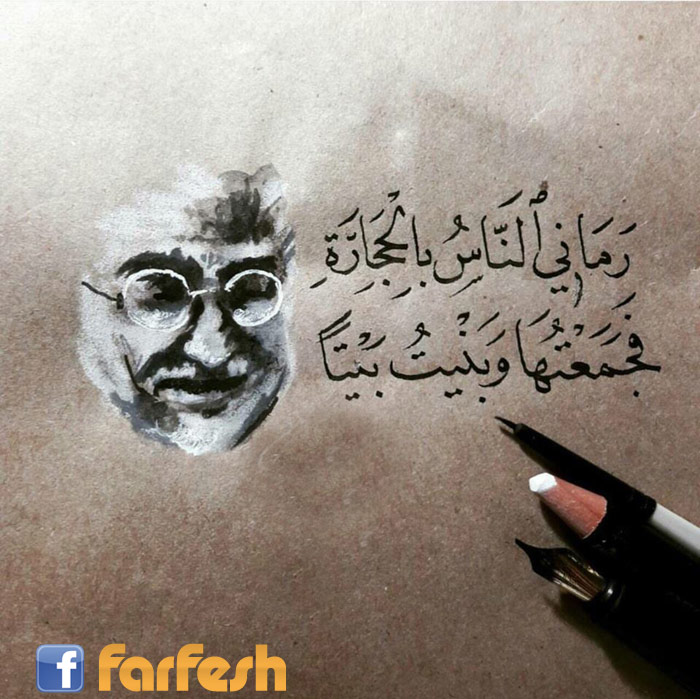 رَمَانِي ٱلنَّاسُ بِالْحِجَارَّةِ
فَجَمَعْتُهَا وَبَنْيتُ بَيْتاً
f farfesh